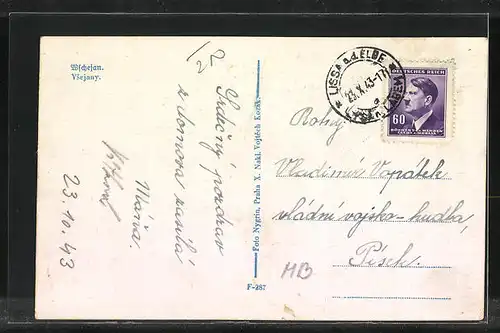 Wschejan.
Všejany.
1/2
Srdečný pozdrav
z domova zasílá
Máňa.
23.10.43
Foto Nygrin, Praha X. Nakl. Vojtěch
F-287
LISSA a.d. ELBE
23.X.43-17
DEUTSCHES REICH
60
BÖHMEN u. MÄHREN
ČECHY a MORAVA
Vladimír Vopátek
vládní vojsko-hudba,
Písek.
MB